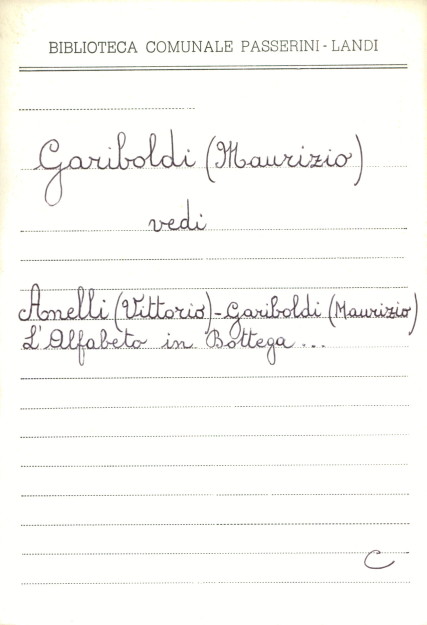 BIBLIOTECA COMUNALE PASSERINI-LANDI
Gariboldi (Maurizio)
vedi
Anelli (Vittorio)-Gariboldi (Maurizio)
L'Alfabeto in Bottega...
C